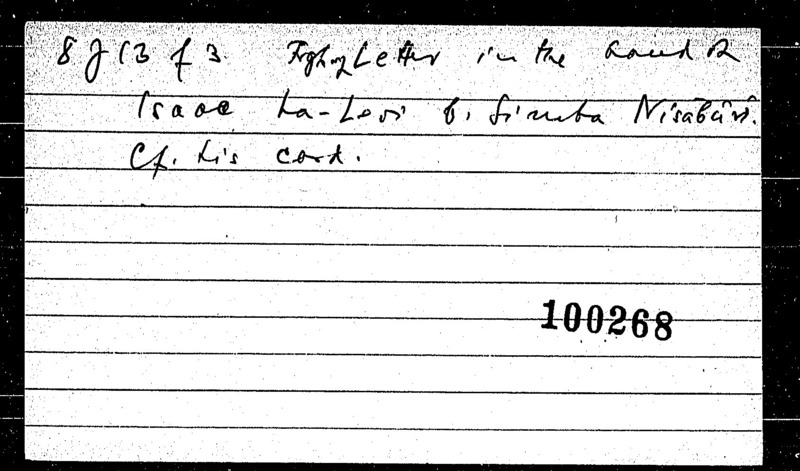 8 J 13 f 3. Frgm of Letter in the hand of
Isaac ha-Levi b. Simha Nisābūrī.
Cf. his card.
100268